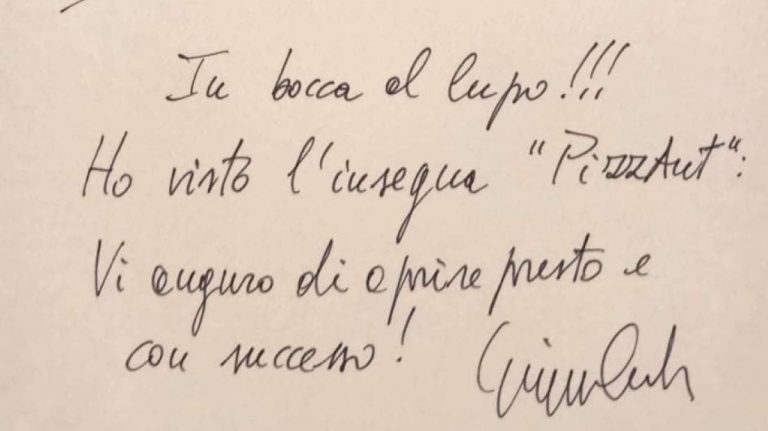 In bocca al lupo!!!
Ho visto l'insegna "PizzAut":
Vi auguro di aprire presto e
con successo!